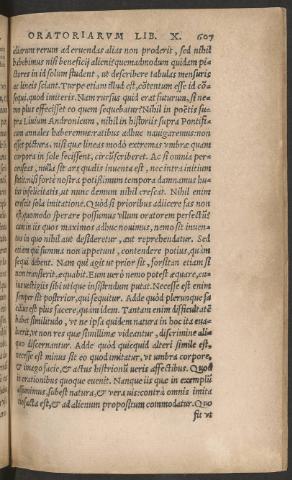 ORATORIARVM LIB. X. 607
aliarum rerum ad eruendas alias non proderit, sed nihil
habebimus nisi beneficij alieni: quemadmodum quidam pi-
ctores in id solum student, ut describere tabulas mensuris
ac lineis sciant. Turpe etiam illud est, cōtentum esse id cō-
sequi, quod imiteris. Nam rursus quid erat futurum, si ne-
mo plus effecisset eo quem sequebatur? Nihil in poëtis su-
pra Liuium Andronicum, nihil in historijs supra Pontifi-
cum annales haberemus: ratibus adhuc nauigaremus: non
esset pictura, nisi quæ lineas modò extremas vmbræ quam
corpora in sole fecissent, circūscriberet. Ac si omnia per-
censeas, nulla sit ars qualis inuenta est, nec intra initium
stetit: nisi fortè nostra potissimum tempora damnamus hu-
ius infelicitatis, ut nunc demum nihil crescat. Nihil enim
crescit sola imitatione. Quòd si prioribus adijcere fas non
est, quomodo sperare possumus vllum oratorem perfectū?
cum in iis quos maximos adhuc nouimus, nemo sit inuen-
tus in quo nihil aut desideretur, aut reprehendatur. Sed
etiam qui summa non appetunt, contendere potius, quàm
sequi debent. Nam qui agit ut prior sit, forsitan etiam si
non transierit, æquabit. Eum uerò nemo potest æquare, cu-
ius uestigiis sibi utique insistendum putat. Necesse est enim
semper sit posterior, qui sequitur. Adde quòd plerunque fa-
cilius est plus facere, quàm idem. Tantam enim difficultatē
habet similitudo, vt ne ipsa quidem natura in hoc ita eua-
luerit, vt non res quæ simillimæ videantur, discrimine ali-
quo discernantur. Adde quòd quicquid alteri simile est,
necesse est minus sit eo quod imitatur, vt umbra corpore,
& imago facie, & actus histrionū ueris affectibus. Quod
in orationibus quoque euenit. Nanque iis quæ in exemplū
assumimus, subest natura, & vera uis: contrà omnis imita
tio facta est, & ad alienum propositum commodatur. Quo
fit vt